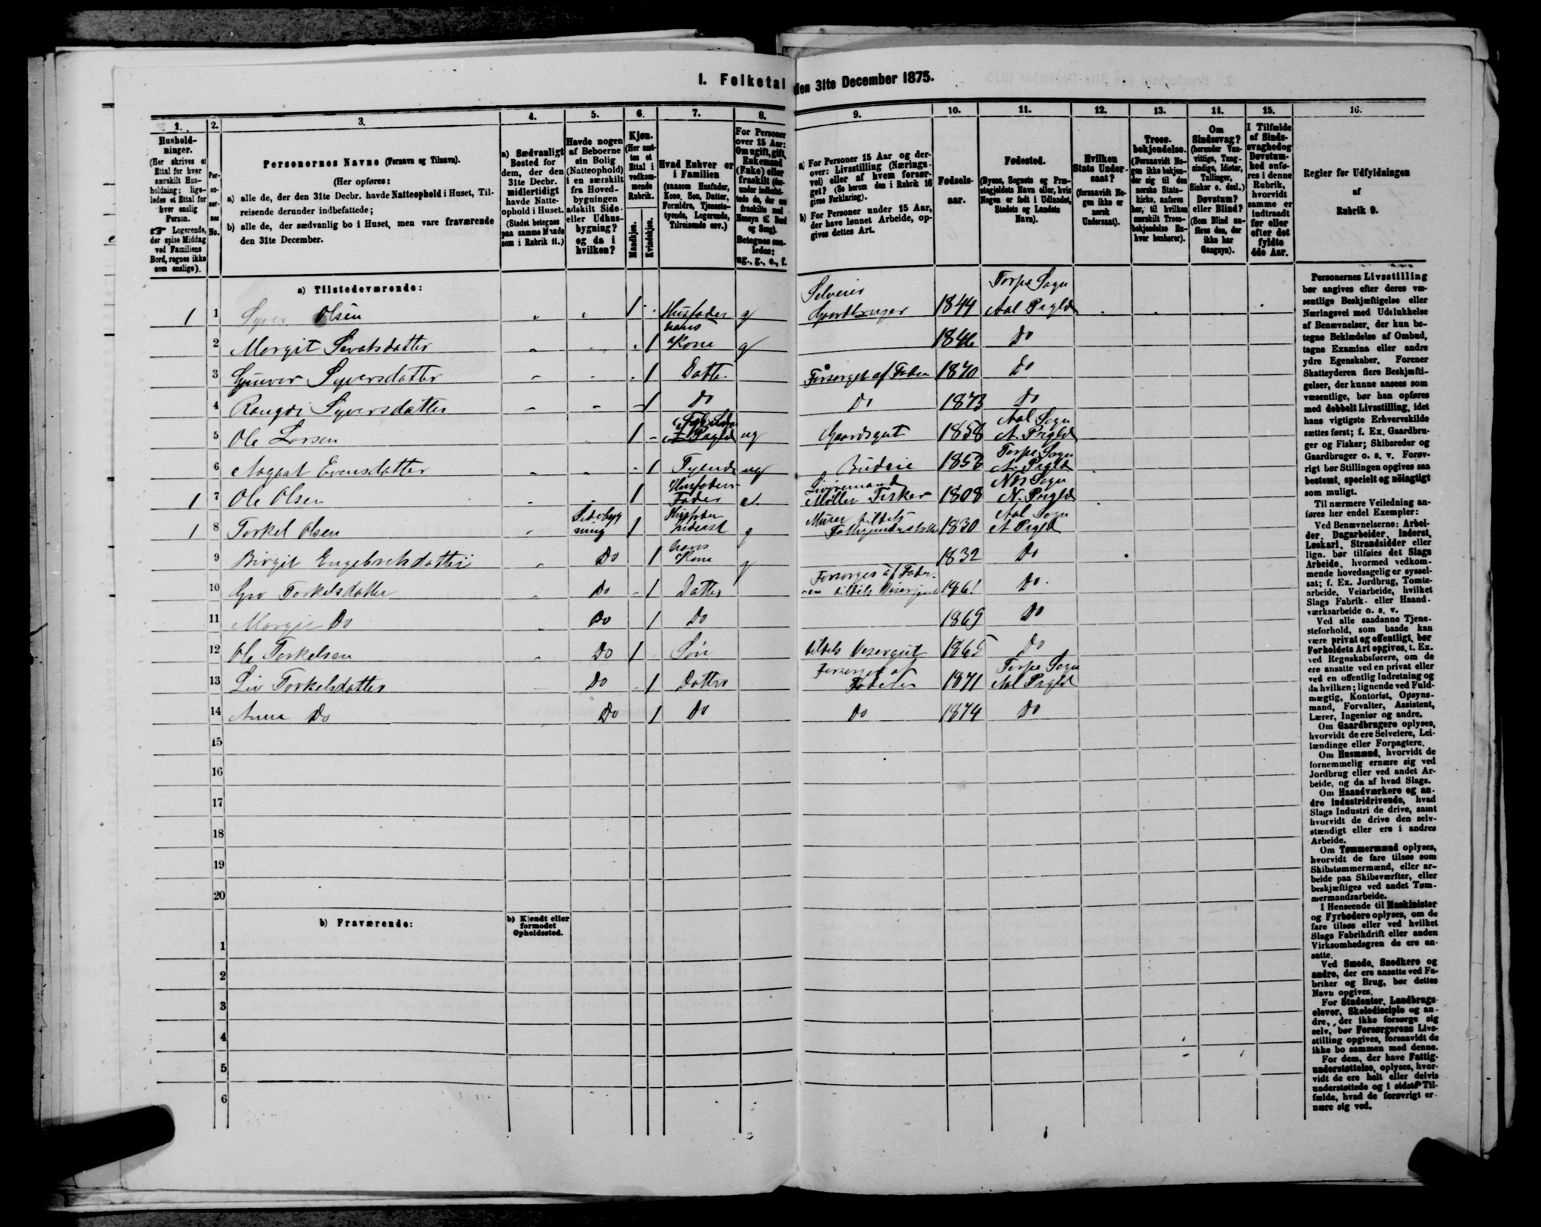 I. Folketal den 31te December 1875.
1. 2. 3. 4. 5. 6. 7. 8. 9. 10. 11. 12. 13. 14. 15. 16.
Hushold-
ninger.
(Her skrives et
Ettal for hver
særskilt Hus-
holdning; lige-
ledes et Ettal for
hver enslig
Person.
☞ Logerende,
der spise Middag
ved Familiens
Bord, regnes ikke
som enslige).
Per-
so-
ner-
nes
No.
Personernes Navne (Fornavn og Tilnavn).
(Her opføres:
a) alle de, der den 31te Decbr. havde Natteophold i Huset, Til-
reisende derunder indbefattede;
b) alle de, der sædvanlig bo i Huset, men vare fraværende
den 31te December.
a) Sædvanligt
Bosted for
dem, der den
31te Decbr.
midlertidigt
havde Natte-
ophold i Huset.
(Stedet betegnes
paa samme Maade
som i Rubrik 11.)
Havde nogen
af Beboerne
sin Bolig
(Natteophold)
i en særskilt
fra Hoved-
bygningen
adskilt Side-
eller Udhus-
bygning?
og da i
hvilken?
Kjøn.
(Her sæt-
tes et
Ettal i
vedkom-
mende
Rubrik.
Mandkjøn.
Kvindekjøn.
Hvad Enhver er
i Familien
(saasom Husfader,
Kone, Søn, Datter,
Forældre, Tjeneste-
tyende, Logerende,
Tilreisende osv.)
For Personer
over 15 Aar:
Om ugift, gift,
Enkemand
(Enke) eller
fraskilt
Betegnes saa-
ledes:
ug., g., e., f.
a) For Personer 15 Aar og der-
over: Livsstilling (Nærings-
vei) eller af hvem forsør-
get? (Se herom den i Rubrik 16
givne Forklaring).
b) For Personer under 15 Aar,
der have lønnet Arbeide, op-
gives dettes Art.
Fødsels-
aar.
Fødested.
(Byens, Sognets og Præ-
stegjeldets Navn eller, hvis
Nogen er født i Udlandet,
Stedets og Landets
Navn).
Hvilken
Stats Under-
saat?
(forsaavidt No-
gen ikke er
norsk
Undersaat).
Troes-
bekjendelse.
(Forsaavidt No-
gen ikke bekjen-
der sig til den
norske Stats-
kirke, anføres
her, til hvilken
særskilt Troes-
bekjendelse En-
hver henhører).
Om
Sindssvag?
(herunder Van-
vittige, Tung-
sindige, Idioter,
Tullinger,
Sinker o. desl.)
Døvstum?
eller Blind?
(Som Blind an-
føres den, der
ikke har
Gangsyn).
I Tilfælde
af Sinds-
svaghed og
Døvstum-
hed anfø-
res i denne
Rubrik,
hvorvidt
samme er
indtraadt
før eller
efter det
fyldte
4de Aar.
Regler for Udfyldningen
af
Rubrik 9.
a) Tilstedeværende:
1 1 Syver Olsen 1 Husfader g Selveier Gaardbruger 1844 Torpe Sogn Aal Prgld
2 Margit Sevatsdatter 1 hans Kone g 1846 Do
3 Gunvor Syversdatter 1 Datter Forsørget af Fader 1870 Do
4 Rangdi Syversdatter 1 Do Do 1873 Do
5 Ole Larsen 1 ug Gaardsgut 1858 Aal Sogn A. Prgld
6 Aagaat Evensdatter 1 Tyende ug Budeie 1852 Torpe Sogn A. Prgld
1 7 Ole Olsen 1 Husfaders Fader e. Møller Fisker 1808 Næs Sogn N. Prgld
1 8 Torkel Olsen Sidebygning 1 g Murer tildels 1830 Aal Sogn A Prgld
9 Birgit Engebretsdatter Do 1 hans Kone g 1832 Do
10 Gro Torkelsdatter Do 1 Datter Forsørges af Faderen tildels 1861 Do
11 Margit Do Do 1 Do 1869 Do
12 Ole Torkelsen Do 1 Søn tildels 1865 Do
13 Liv Torkelsdatter Do 1 Datter Forsørget af Faderen 1871 Torpe Sogn Aal Prgld
14 Anne Do Do 1 Do Do 1874 Do
15
16
17
18
19
20
b) Fraværende:
b) Kjendt eller
formodet
Opholdssted.
1
2
3
4
5
6
Personernes Livsstilling
bør angives efter deres væ-
sentlige Beskjæftigelse eller
Næringsvei med Udelukkelse
af Benævnelser, der kun be-
tegne Beklædelse af Ombud,
tagne Examina eller andre
ydre Egenskaber. Forener
Skatteyderen flere Beskjæfti-
gelser, der kunne ansees som
væsentlige, bør han opføres
med dobbelt Livsstilling, idet
hans vigtigste Erhvervskilde
sættes først; f. Ex. Gaardbru-
ger og Fisker; Skibsreder og
Gaardbruger o. s. v. Forøv-
rigt bør Stillingen opgives saa
bestemt, specielt og nøiagtigt
som muligt.
Til nærmere Veiledning an-
føres her endel Exempler:
Ved Benævnelserne: Arbei-
der, Dagarbeider, Inderst,
Løskarl, Strandsidder eller
lign. bør tilføies det Slags
Arbeide, hvormed vedkom-
mende hovedsagelig er syssel-
sat; f. Ex. Jordbrug, Tomte-
arbeide, Veiarbeide, hvilket
Slags Fabrik- eller Haand-
værksarbeide o. s. v.
Ved alle saadanne Tjene-
steforhold, som baade kan
være privat og offentligt, bør
Forholdets Art opgives, t. Ex.
ved Regnskabsførere, om de
ere ansatte ved en privat eller
ved en offentlig Indretning og
da hvilken; lignende ved Fuld-
mægtig, Kontorist, Opsyns-
mand, Forvalter, Assistent,
Lærer, Ingeniør og andre.
Om Gaardbrugere oplyses,
hvorvidt de ere Selveiere, Lei-
lændinge eller Forpagtere.
Om Husmænd, hvorvidt de
fornemmelig ernære sig ved
Jordbrug eller ved andet Ar-
beide, og da af hvad Slags.
Om Haandværkere og an-
dre Industridrivende, hvad
Slags Industri de drive, samt
hvorvidt de drive den selv-
stændigt eller ere i andres
Arbeide.
Om Tømmermænd oplyses,
hvorvidt de fare tilsøs som
Skibstømmermænd, eller ar-
beide paa Skibsværfter, eller
beskjæftiges ved andet Tøm-
mermandsarbeide.
I Henseende til Maskinister
og Fyrbødere oplyses, om de
fare tilsøs eller ved hvilket
Slags Fabrikdrift eller anden
Virksomhedsgren de ere an-
satte.
Ved Smede, Snedkere og
andre, der ere ansatte ved Fa-
briker og Brug, bør dettes
Navn opgives.
For Studenter, Landbrugs-
elever, Skoledisciple og an-
dre, der ikke forsørge sig
selv, bør Forsørgerens Livs-
stilling opgives, forsaavidt de
ikke bo sammen med denne.
For dem, der have Fattig-
understøttelse, oplyses, hvor-
vidt de ere helt eller delvis
understøttede og i sidste Til-
fælde, hvad de forøvrigt er-
nære sig ved.